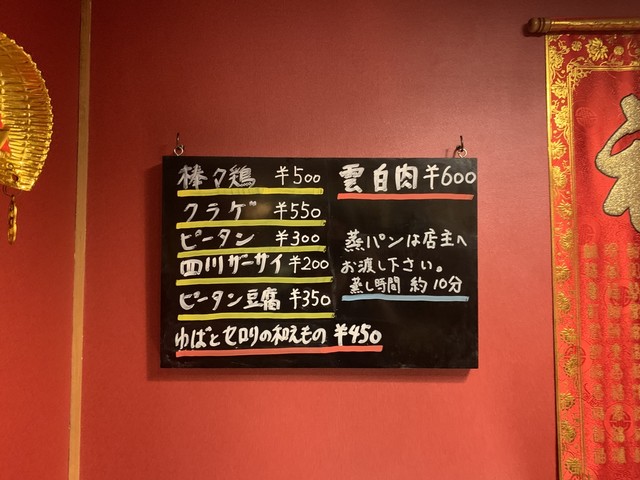 棒々鶏 ¥500
クラゲ ¥550
ピータン ¥300
四川ザーサイ ¥200
ピータン豆腐 ¥350
ゆばとセロリの和えもの ¥450
雲白肉 ¥600
蒸パンは店主へ
お渡し下さい。
蒸し時間 約10分